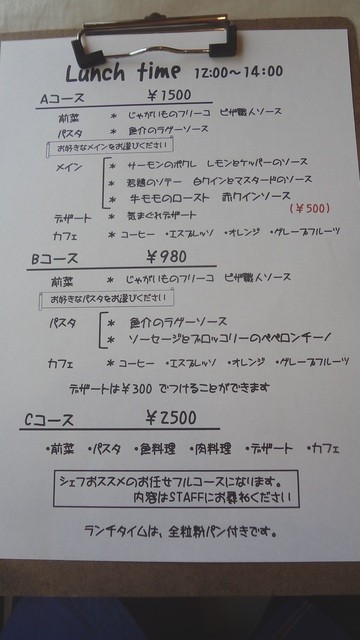 Lunch time 12:00～14:00
Aコース ￥1500
前菜 * じゃがいものフリーコ ピザ職人ソース
パスタ * 魚介のラグーソース
お好きなメインをお選びください
メイン * サーモンのポワレ レモンとケッパーのソース
* 若鶏のソテー 白ワインとマスタードのソース
* 牛モモのロースト 赤ワインソース
(￥500)
デザート * 気まぐれデザート
カフェ * コーヒー ・エスプレッソ ・オレンジ ・グレープフルーツ
Bコース ￥980
前菜 * じゃがいものフリーコ ピザ職人ソース
お好きなパスタをお選びください
パスタ * 魚介のラグーソース
* ソーセージとブロッコリーのペペロンチーノ
カフェ * コーヒー ・エスプレッソ ・オレンジ ・グレープフルーツ
デザートは￥300 でつけることができます
Cコース ￥2500
・前菜 ・パスタ ・魚料理 ・肉料理 ・デザート ・カフェ
シェフおススメのお任せフルコースになります。
内容はSTAFFにお尋ねください
ランチタイムは、全粒粉パン付きです。